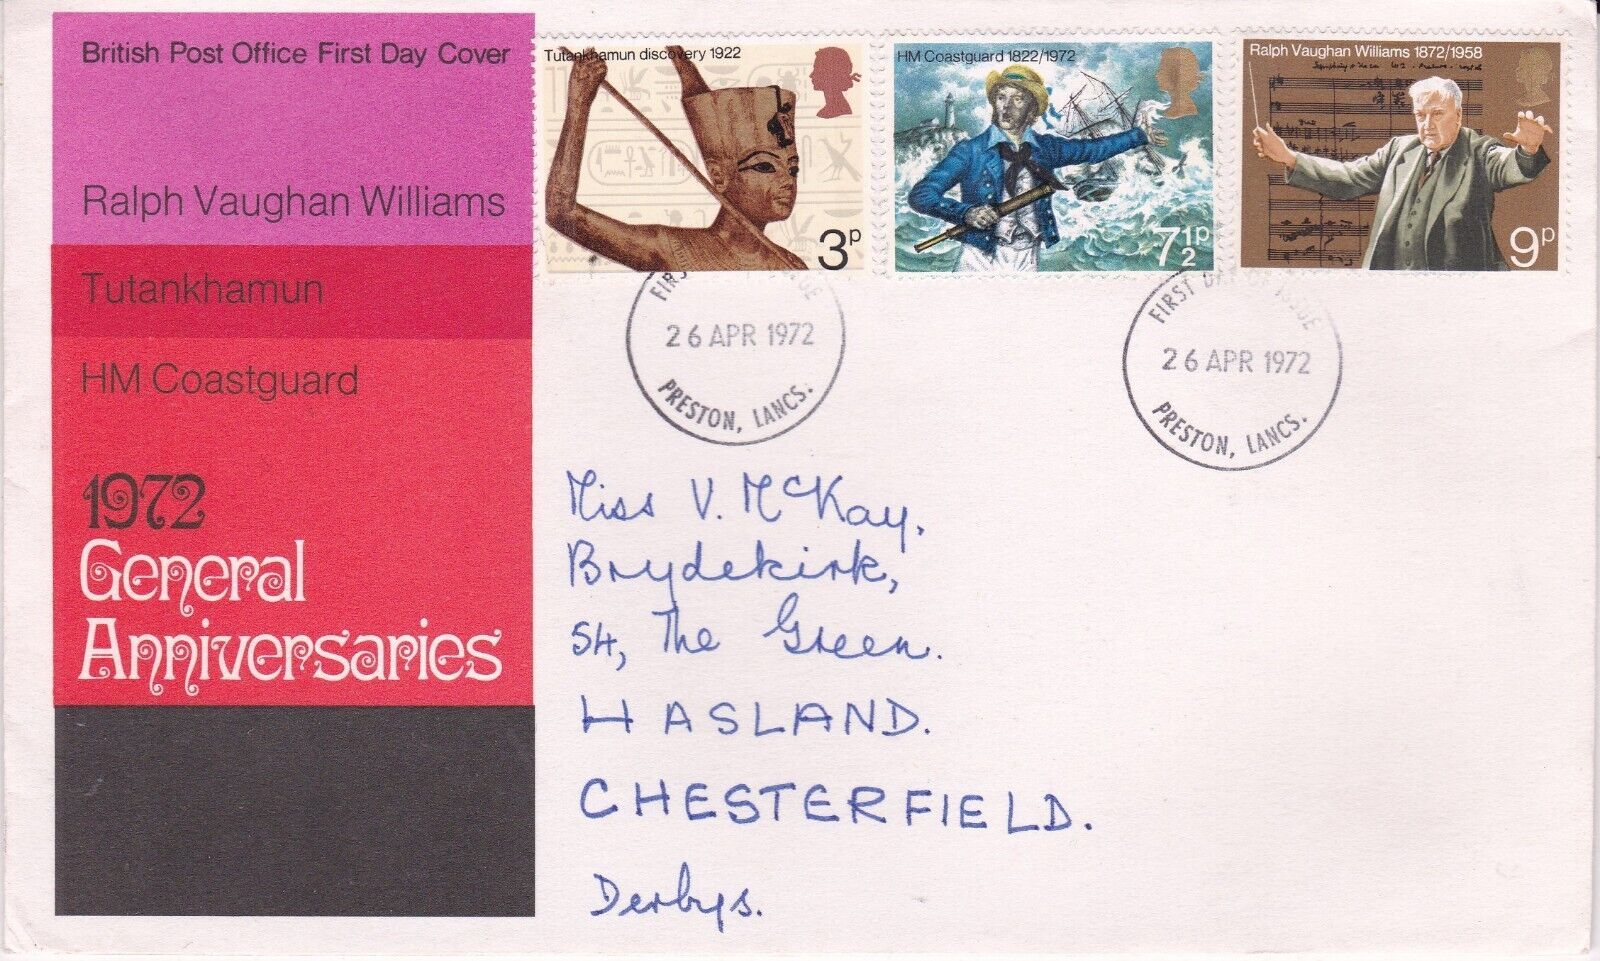 British Post Office First Day Cover
Ralph Vaughan Williams
Tutankhamun
HM Coastguard
1972
General
Anniversaries
Tutankhamun discovery 1922
3p
HM Coastguard 1822/1972
7½p
Ralph Vaughan Williams 1872/1958
9p
FIRST DAY OF ISSUE
26 APR 1972
PRESTON, LANCS.
FIRST DAY OF ISSUE
26 APR 1972
PRESTON, LANCS.
Miss V. McKay,
Brydekirk,
54, The Green.
HASLAND.
CHESTERFIELD.
Derbys.